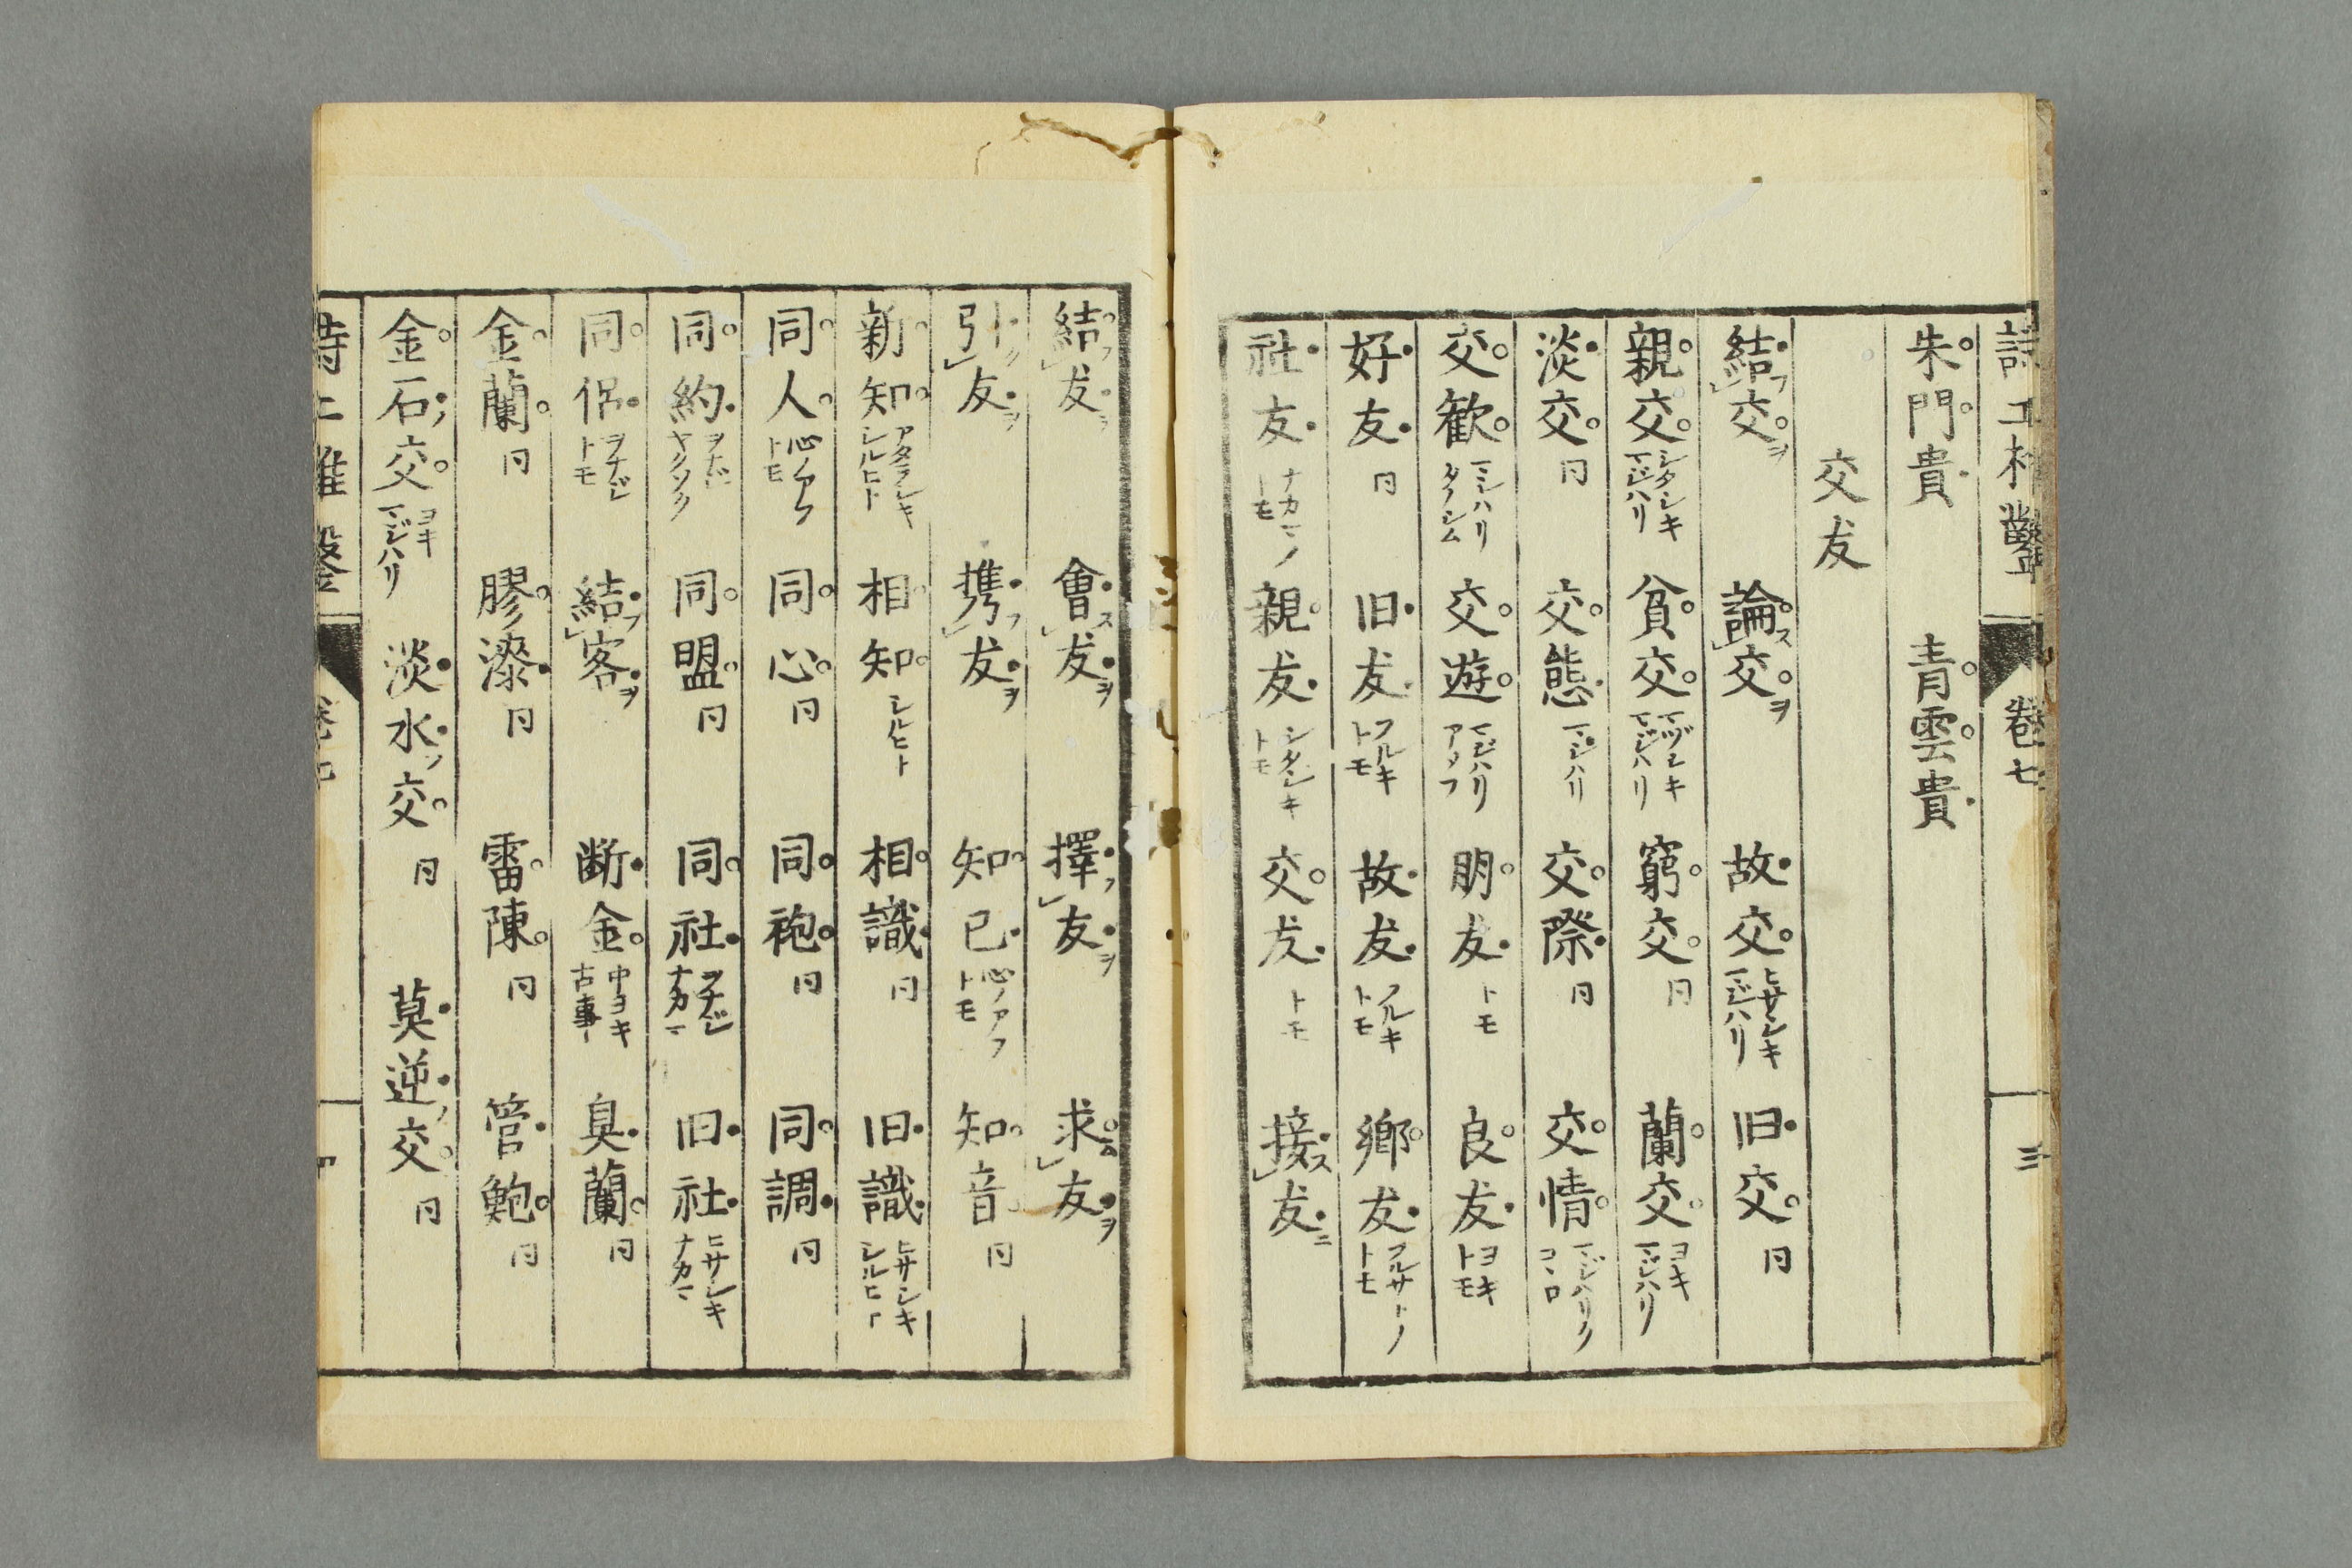 詩工 卷七 三
朱門貴 青雲貴
交友
結フレ交ヲ 論スレ交ヲ 故交ヒサシキマジハリ 旧交同
親交シタシキマジハリ 貧交マヅシキマジハリ 窮交同 蘭交ヨキマジハリ
淡交同 交態マジハリ 交際同 交情マジハリノコヽロ
交歓マジハリタノシム 交遊マジハリアソフ 朋友トモ 良友ヨキトモ
好友同 旧友フルキトモ 故友フルキトモ 郷友フルサトノトモ
社友ナカマノトモ 親友シタシキトモ 交友トモ 接スレ友ニ
結フレ友ヲ 會スレ友ヲ 擇フレ友ヲ 求ムレ友ヲ
引クレ友ヲ 携フレ友ヲ 知己心ノアフトモ 知音同
新知アタラシキシルヒト 相知シルヒト 相識同 旧識ヒサシキシルヒト
同人心ノアフトモ 同心同 同袍同 同調同
同約ヲナジヤクソク 同盟同 同社ヲナジナカマ 旧社ヒサシキナカマ
同侶ヲナジトモ 結フレ客ヲ 断金中ヨキ古事 臭蘭同
金蘭同 膠漆同 雷陳同 管鮑同
金石ノ交ヨキマジハリ 淡水ノ交同 莫逆ノ交同